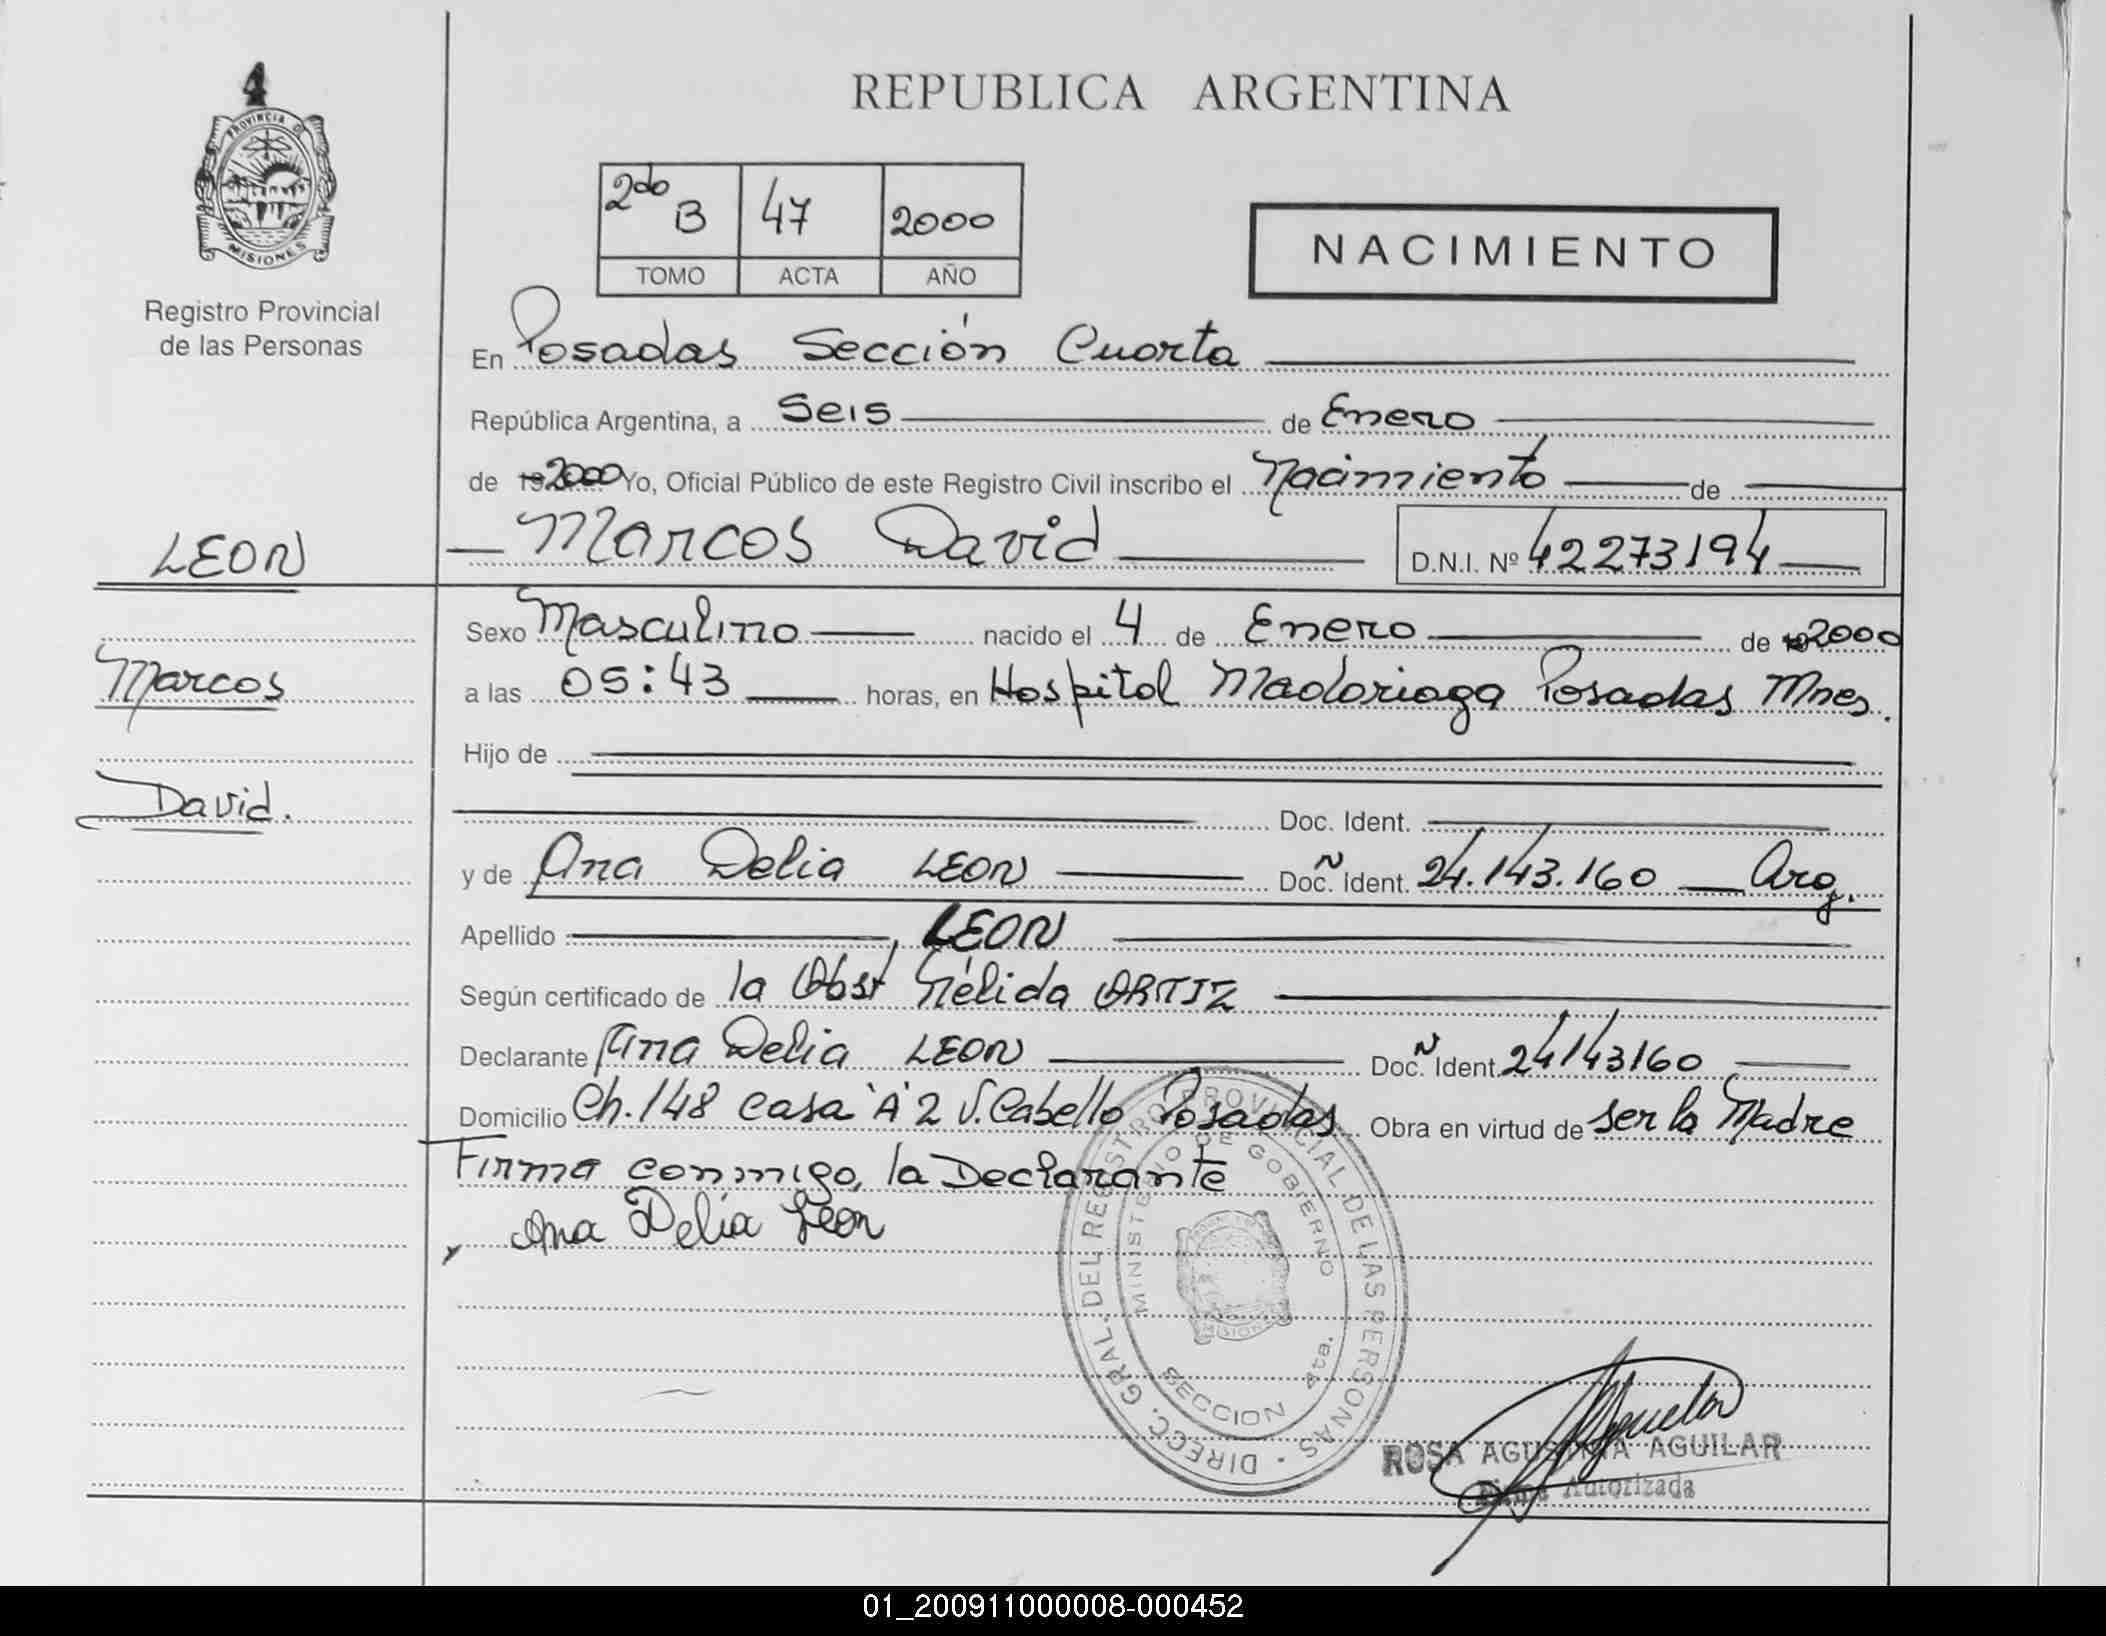 REPUBLICA ARGENTINA
PROVINCIA D
MISIONES
Registro Provincial
de las Personas
2do B 47 2000
TOMO ACTA AÑO
NACIMIENTO
En Posadas Sección Cuarta
República Argentina, a Seis de Enero
de 2000 Yo, Oficial Público de este Registro Civil inscribo el Nacimiento de
Marcos David D.N.I. Nº 42273194
LEON
Marcos
David.
Sexo Masculino nacido el 4 de Enero de 2000
a las 05:43 horas, en Hospital Madariaga Posadas Mnes.
Hijo de
Doc. Ident.
y de Ana Delia LEON Doc. N Ident. 24.143.160 Arg.
Apellido LEON
Según certificado de la Obst Nélida ORTIZ
Declarante Ana Delia LEON Doc. N Ident. 24143160
Domicilio Ch. 148 casa "A" 2 V. Cabello Posadas Obra en virtud de ser la Madre
Firma conmigo, la Declarante
Ana Delia Leon
DIRECC. GRAL. DEL REGISTRO PROVINCIAL DE LAS PERSONAS
MINISTERIO DE GOBIERNO
MISIONES
SECCION 4ta.
ROSA AGUSTINA AGUILAR
Firma Autorizada
01_200911000008-000452